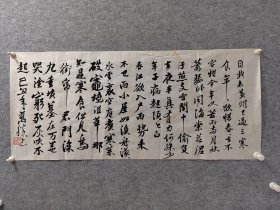 自我来黄州已過三寒
食年年欲惜春春去不
容惜今年又苦雨兩月秋
蕭瑟卧聞海棠花泥
污燕支雪闇中偷負
去夜半真有力何殊少
年病起頭已白
春江欲入户雨勢來
不已雨小屋如漁舟濛濛
水雲裏空庖煮寒菜
破竈燒濕葦那
知是寒食但見烏
銜帋君門深
九重墳墓在万里也擬
哭塗窮死灰吹不
起